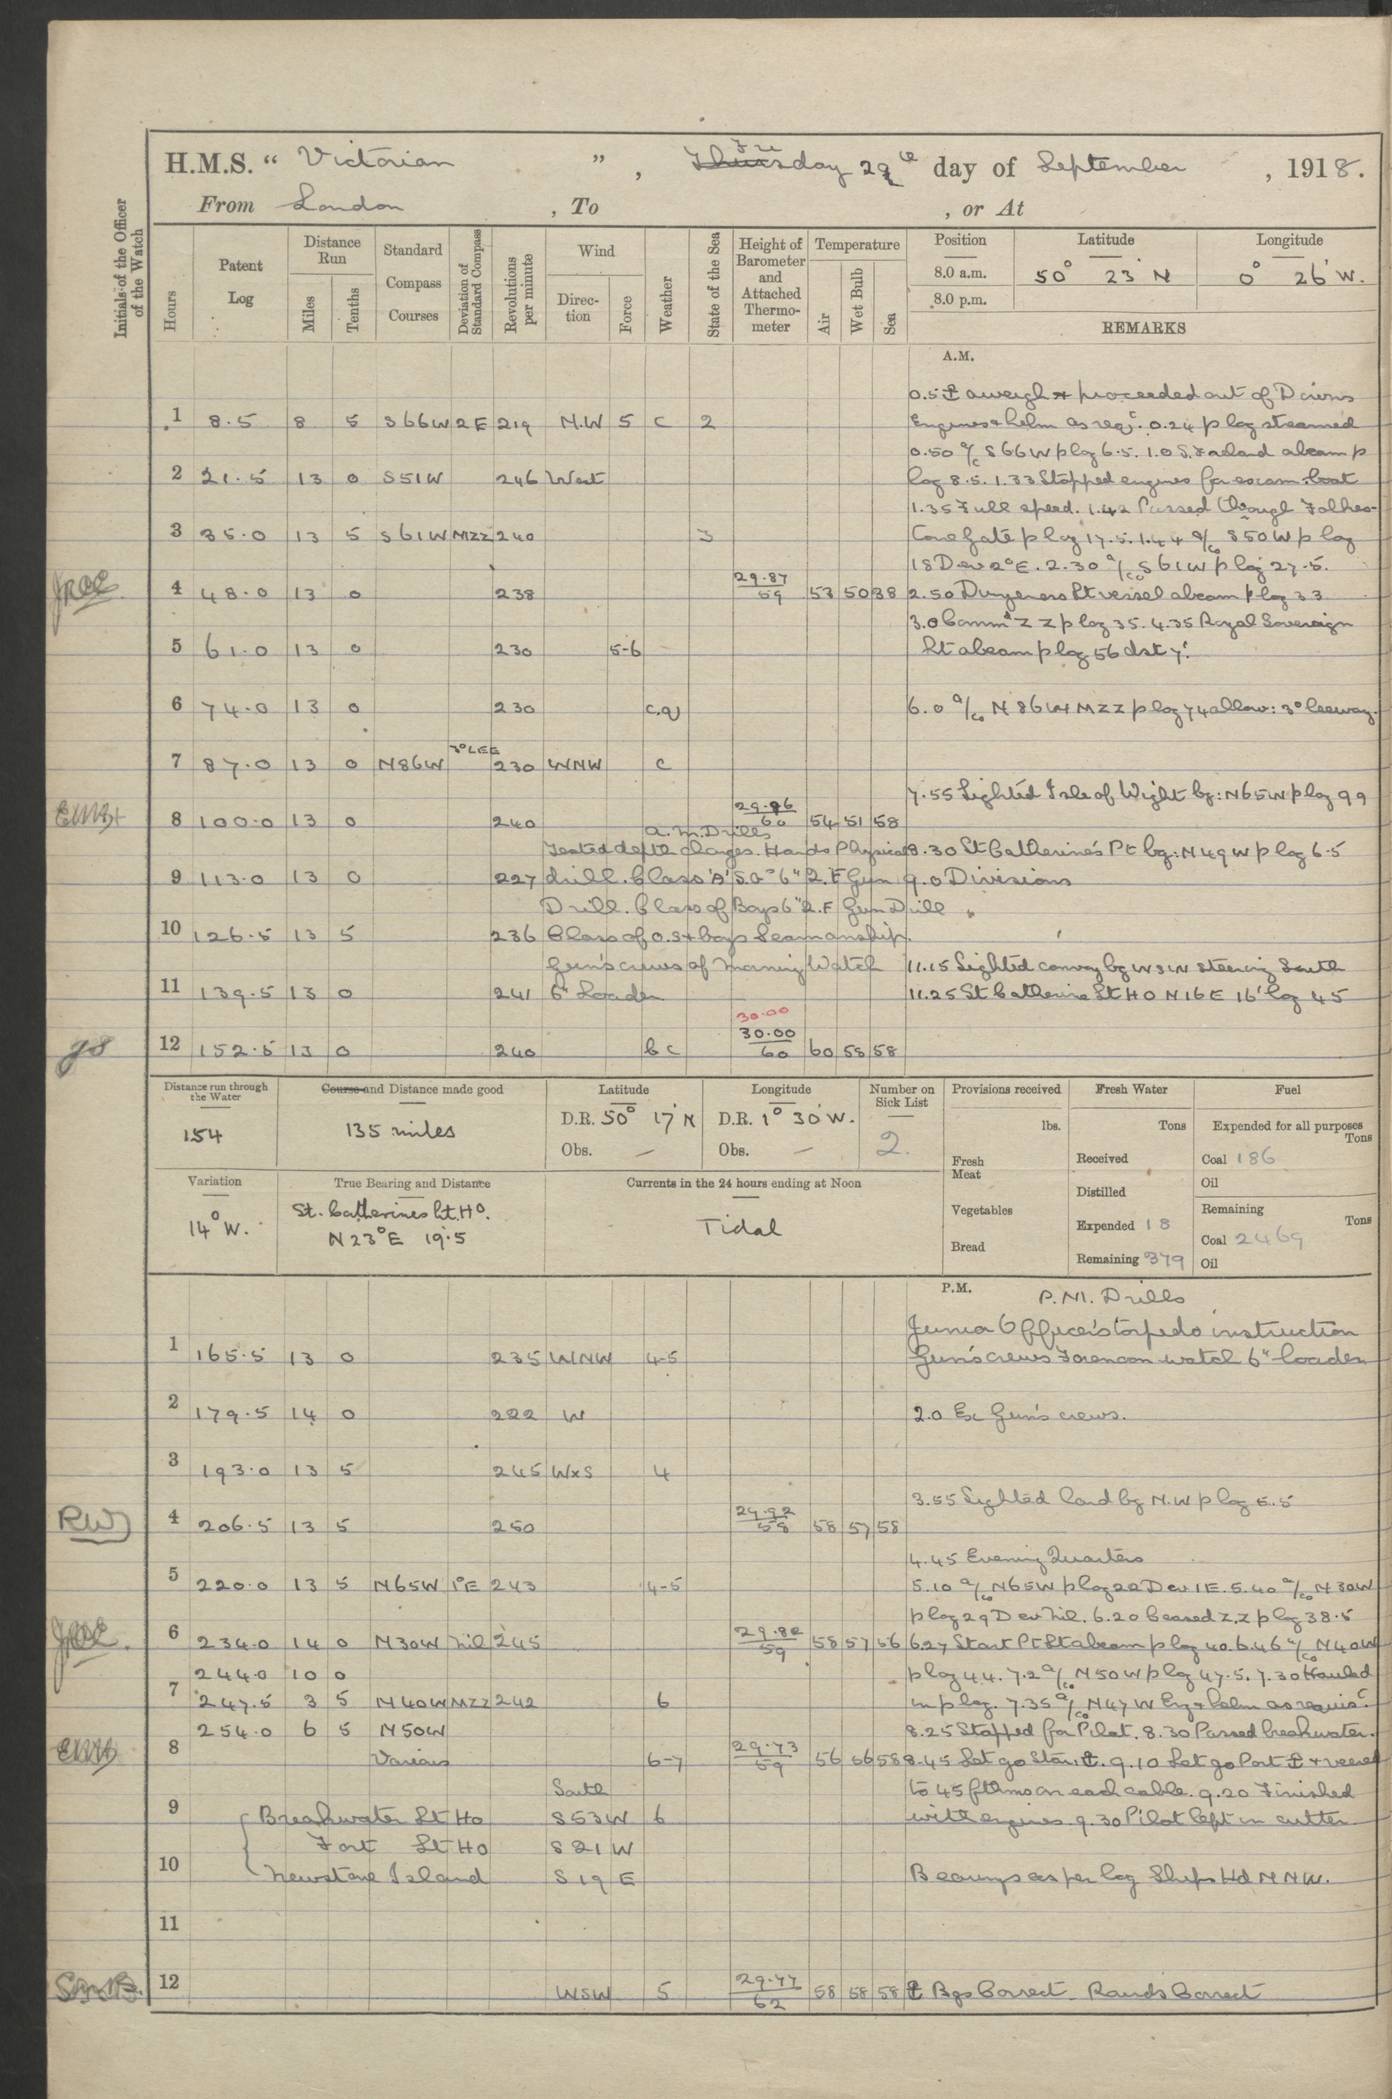 H.M.S. “ Victorian ” , Thursday Fri 29th day of September , 1918.
From London , To , or At
Initials of the Officer of the Watch
Hours
Patent Log
Distance Run
Miles
Tenths
Standard Compass Courses
Deviation of Standard Compass
Revolutions per minute
Wind
Direction
Force
Weather
State of the Sea
Height of Barometer and Attached Thermometer
Temperature
Air
Wet Bulb
Sea
Position
Latitude
Longitude
8.0 a.m. 50° 23' N 0° 26' W.
8.0 p.m.
REMARKS
A.M.
0.5 ⚓ aweigh & proceeded out of Downs
1 8.5 8 5 S66W 2E 219 N.W 5 c 2 Engines & helm as req. 0.24 p log streamed
0.50 a/c S66W p log 6.5. 1.0 S. Foreland abeam p
2 21.5 13 0 S51W 246 West log 8.5. 1.33 Stopped engines for exam: boat
1.35 Full speed. 1.42 Passed through Folkes-
3 35.0 13 5 S61W MZZ 240 3 tone Gate p log 17.5. 1.44 a/co S50W p log
18 Dev 2°E. 2.30 a/co S61W p log 27.5.
4 48.0 13 0 238 29.87 59 53 50 38 2.50 Dungeness Lt vessel abeam p log 33
3.0 Comm. ZZ p log 35. 4.35 Royal Sovereign
5 61.0 13 0 230 5-6 Lt abeam p log 56 dst 7'.
6 74.0 13 0 230 c.q 6.0 a/co N86W MZZ p log 74 allow: 3° leeway.
7 87.0 13 0 N86W 3° LEE 230 WNW c
7.55 Sighted Isle of Wight bg: N65W p log 99
8 100.0 13 0 240 29.96 60 54 51 58
a.m. Drills
Tested depth charges. Hands Physical 8.30 St Catherine's Pt bg: N49W p log 6.5
9 113.0 13 0 227 drill. Class 'A' S.Q. 6" Q.F Gun 9.0 Divisions
Drill. Class of Boys 6" Q.F Gun Drill
10 126.5 13 5 236 Class of O.S & boys Seamanship.
Gun's crews of morning Watch 11.15 Sighted convoy bg WSW steering South
11 139.5 13 0 241 6" Loader 11.25 St Catherine Lt Ho N16E 16' log 45
30.00
12 152.5 13 0 240 bc 30.00 60 60 58 58
Distance run through the Water
154
Course and Distance made good
135 miles
Latitude
D.R. 50° 17' N
Obs. —
Longitude
D.R. 1° 30' W.
Obs. —
Number on Sick List
2.
Provisions received
lbs.
Fresh Meat
Vegetables
Bread
Fresh Water
Tons
Received
Distilled
Expended 18
Remaining 379
Fuel
Expended for all purposes
Tons
Coal 186
Oil
Remaining
Tons
Coal 2469
Oil
Variation
14° W.
True Bearing and Distance
St. Catherines Lt. Ho.
N23°E 19.5
Currents in the 24 hours ending at Noon
Tidal
P.M.
P.M. Drills
Junior Officers torpedo instruction
1 165.5 13 0 235 WNW 4-5 Gun's crews Forenoon watch 6" loader
2 179.5 14 0 222 W 2.0 Ex Gun's crews.
3 193.0 13 5 245 WxS 4
3.55 Sighted land bg N.W p log 5.5
4 206.5 13 5 250 29.92 58 58 57 58
4.45 Evening Quarters
5 220.0 13 5 N65W 1°E 243 4-5 5.10 a/co N65W p log 22 Dev 1E. 5.40 a/co N30W
p log 29 Dev Nil. 6.20 Ceased Z.Z p log 38.5
6 234.0 14 0 N30W Nil 245 29.82 59 58 57 56 6.27 Start Pt Lt abeam p log 40. 6.46 a/co N40W
244.0 10 0 p log 44. 7.2 a/co N50W p log 47.5. 7.30 Hauled
7 247.5 3 5 N40W MZZ 242 6 in p log. 7.35 a/co N47W Eng & helm as requis.
254.0 6 5 N50W 8.25 Stopped for Pilot. 8.30 Passed breakwater.
8 Various 6-7 29.73 59 56 56 58 8.45 Let go Star: ⚓. 9.10 Let go Port ⚓ & veered
South to 45 fthms on each cable. 9.20 Finished
9 Breakwater Lt Ho S53W 6 with engines 9.30 Pilot left in cutter
Fort Lt Ho S21W
10 Island S19E Bearings as per log Ships Hd NNW.
11
12 WSW 5 29.77 62 58 58 58 ⚓ Bgs Correct Rounds Correct